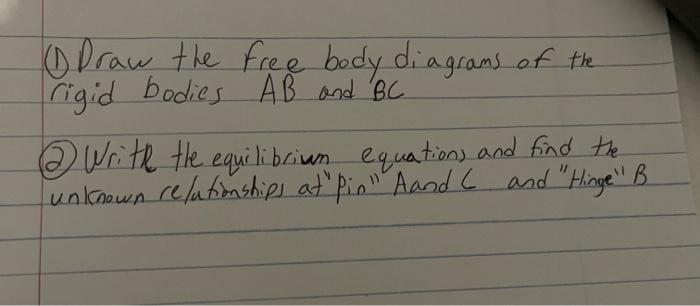 ① Draw the free body diagrams of the
rigid bodies AB and BC
② Write the equilibrium equations and find the
unknown relationships at "pin" A and C and "Hinge" B